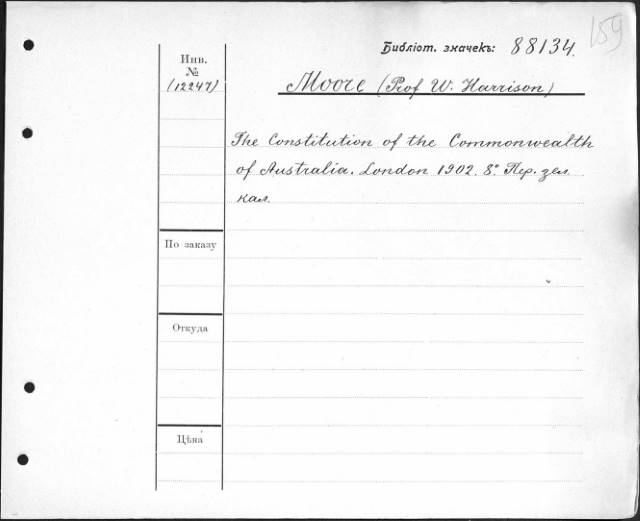 159
Библіот. значекъ: 88134.
Инв.
№
(12247)
Moore (Prof W. Harrison)
The Constitution of the Commonwealth
of Australia. London 1902. 8° Пер. зел.
кал.
По заказу
Откуда
Цѣна